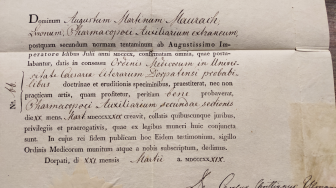 Dominum Augustum Martinum Maurach,
Livonum, Pharmacopoei Auxiliarium extraneum,
postquam secundum normam tentaminum ab Augustissimo Im-
peratore Idibus Julii anno MDCCCX, confirmatam, omnia, quae postu-
labantur, datis in consessu Ordinis Medicorum in Univer-
sitate Caesarea Literarum Dorpatensi probabi-
libus doctrinae et eruditionis speciminibus, praestiterit, nec non
practicam artis, quam profitetur, peritiam bene probaverit,
Pharmacopoei Auxiliarium secundae sectionis
die mens. Mart. creavit, collatis quibuscunque juribus,
privilegiis et praerogativis, quae ex legibus muneri huic conjuncta
sunt. In cujus rei fidem publicam hoc Eidem testimonium, sigillo
Ordinis Medicorum munitum atque a nobis subscriptum, dedimus.
Dorpati, d. XXI mensis Martii a. MDCCCXXIX.
No. 66
Dr. Carolus